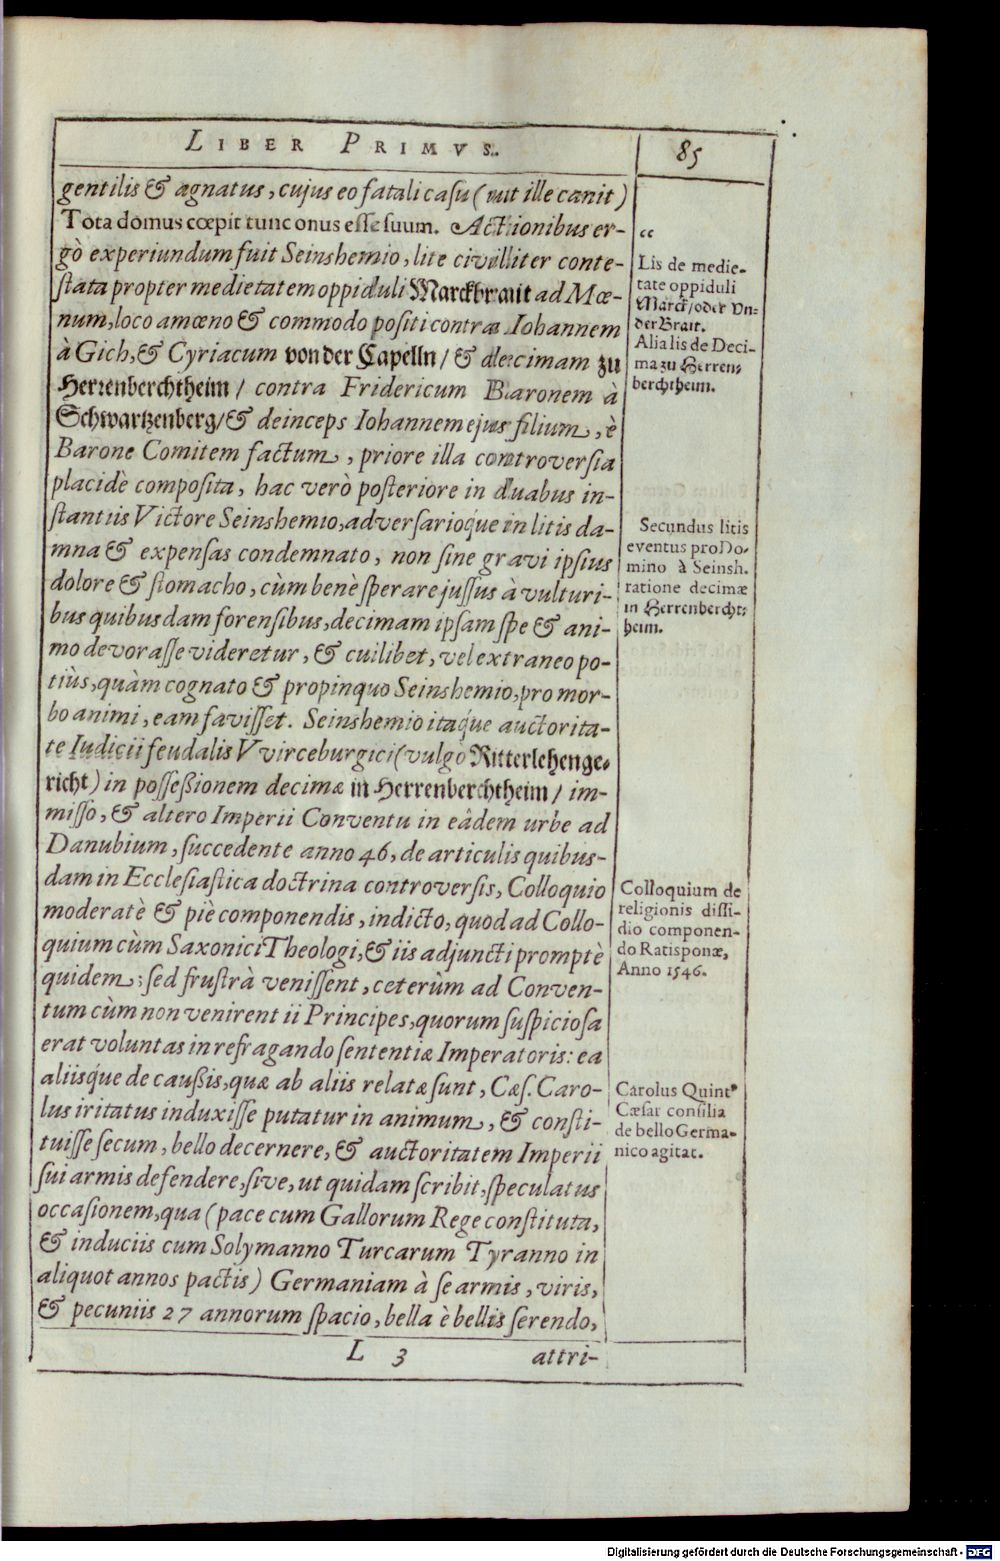 LIBER PRIMVS.
85
gentilis & agnatus, cujus eo fatali casu (uut ille canit)
Tota domus cœpit tunc onus esse suum. Actionibus er-
gò experiundum fuit Seinshemio, lite civilliter conte-
stata propter medietatem oppiduli Marckbrait ad Mœ-
num, loco amœno & commodo positi contra Iohannem
à Gich, & Cyriacum von der Capelln / & decimam zu
Herrenberchtheim / contra Fridericum Baronem à
Schwartzenberg / & deinceps Iohannem ejus filium, è
Barone Comitem factum, priore illa controversia
placidè composita, hac verò posteriore in duabus in-
stantiis Victore Seinshemio, adversarioq́ue in litis da-
mna & expensas condemnato, non sine gravi ipsius
dolore & stomacho, cùm benè sperare jussus à vulturi-
bus quibusdam forensibus, decimam ipsam spe & ani-
mo devorasse videretur, & cuilibet, vel extraneo po-
tiùs, quàm cognato & propinquo Seinshemio, pro mor-
bo animi, eam favisset. Seinshemio itaq́ue auctorita-
te Iudicii feudalis VVirceburgici (vulgò Ritterlehenge-
richt) in possessionem decimæ in Herrenberchtheim / im-
misso, & altero Imperii Conventu in eâdem urbe ad
Danubium, succedente anno 46, de articulis quibus-
dam in Ecclesiastica doctrina controversis, Colloquio
moderatè & piè componendis, indicto, quod ad Collo-
quium cùm Saxonici Theologi, & iis adjuncti promptè
quidem; sed frustrà venissent, ceterùm ad Conven-
tum cùm non venirent ii Principes, quorum suspiciosa
erat voluntas in refragando sententiæ Imperatoris: ea
aliisq́ue de caussis, quæ ab aliis relatæ sunt, Cæs. Caro-
lus iritatus induxisse putatur in animum, & consti-
tuisse secum, bello decernere, & auctoritatem Imperii
sui armis defendere, sive, ut quidam scribit, speculatus
occasionem, qua (pace cum Gallorum Rege constituta,
& induciis cum Solymanno Turcarum Tyranno in
aliquot annos pactis) Germaniam à se armis, viris,
& pecuniis 27 annorum spacio, bella è bellis serendo,
L 3
attri-
“
Lis de medie-
tate oppiduli
Marck / oder Vn-
der Brait.
Alia lis de Deci-
ma zu Herren-
berchtheim.
Secundus litis
eventus pro Do-
mino à Seinsh.
ratione decimæ
in Herrenbercht-
heim.
Colloquium de
religionis dissi-
dio componen-
do Ratisponæ,
Anno 1546.
Carolus Quintꝰ
Cæsar consilia
de bello Germa-
nico agitat.
Digitalisierung gefördert durch die Deutsche Forschungsgemeinschaft - DFG